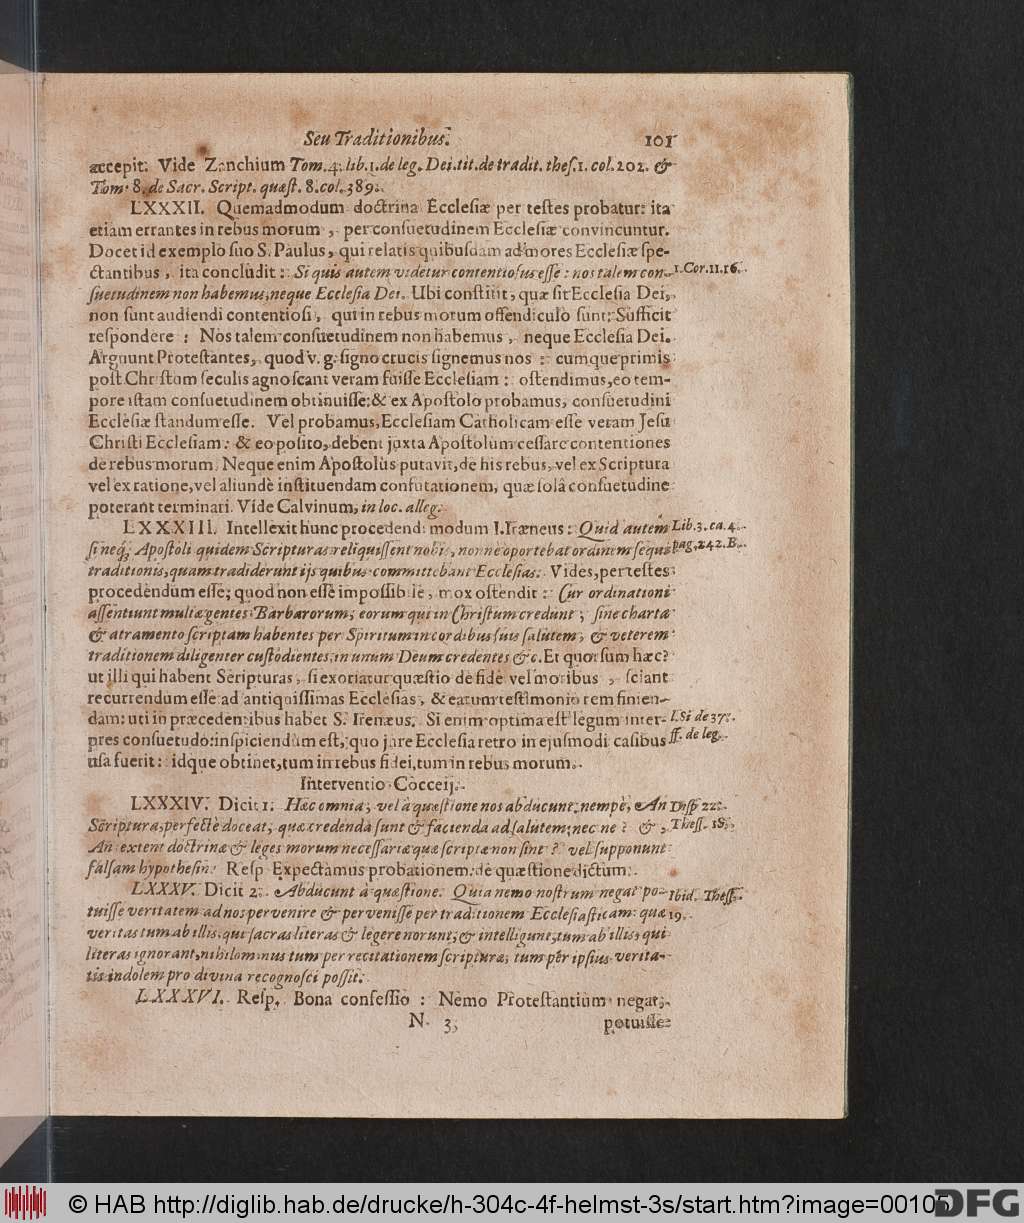 Seu Traditionibus. 101
accepit. Vide Zanchium Tom. 4. lib. 1. de leg. Dei. tit. de tradit. thes. 1. col. 202. &
Tom. 8. de Sacr. Script. quæst. 8. col. 389.
LXXXII. Quemadmodum doctrina Ecclesiæ per testes probatur: ita
etiam errantes in rebus morum, per consuetudinem Ecclesiæ convincuntur.
Docet id exemplo suo S. Paulus, qui relatis quibusdam ad mores Ecclesiæ spe-
ctantibus, ita concludit: Si quis autem videtur contentiosus esse: nos talem con- 1. Cor. 11. 16.
suetudinem non habemus, neque Ecclesia Dei. Ubi constitit, quæ sit Ecclesia Dei,
non sunt audiendi contentiosi, qui in rebus morum offendiculo sunt: Sufficit
respondere: Nos talem consuetudinem non habemus, neque Ecclesia Dei.
Arguunt Protestantes, quod v. g. signo crucis signemus nos: cumque primis
post Christum seculis agnoscant veram fuisse Ecclesiam: ostendimus, eo tem-
pore istam consuetudinem obtinuisse: & ex Apostolo probamus, consuetudini
Ecclesiæ standum esse. Vel probamus, Ecclesiam Catholicam esse veram Jesu
Christi Ecclesiam: & eo posito, debent juxta Apostolum cessare contentiones
de rebus morum. Neque enim Apostolus putavit, de his rebus, vel ex Scriptura
vel ex ratione, vel aliundè instituendam confutationem, quæ solâ consuetudine
poterant terminari. Vide Calvinum, in loc. alleg.
LXXXIII. Intellexit hunc procedendi modum S. Iræneus: Quid autem Lib. 3. ca. 4.
si neq; Apostoli quidem Scripturas reliquissent nobis, nonne oportebat ordinem sequi pag. 242. B.
traditionis, quam tradiderunt ijs quibus committebant Ecclesias. Vides, per testes
procedendum esse; quod non esse impossibile, mox ostendit: Cui ordinationi
assentiunt multæ gentes Barbarorum, eorum qui in Christum credunt, sine charta
& atramento scriptam habentes per Spiritum in cordibus suis salutem, & veterem
traditionem diligenter custodientes, in unum Deum credentes &c. Et quorsum hæc?
ut illi qui habent Scripturas, si exoriatur quæstio de fide vel moribus, sciant
recurrendum esse ad antiquissimas Ecclesias, & earum testimonio rem finien-
dam: uti in præcedentibus habet S. Irenæus. Si enim optima est legum inter- l. Si de 37.
pres consuetudo: inspiciendum est, quo jure Ecclesia retro in ejusmodi casibus ff. de leg.
usa fuerit: idque obtinet, tum in rebus fidei, tum in rebus morum.
Interventio Cocceij.
LXXXIV. Dicit 1. Hæc omnia, vel à quæstione nos abducunt: nempè, An Disp. 22.
Scriptura perfectè doceat, quæ credenda sunt & facienda ad salutem, nec ne? &, Thess. 18.
An extent doctrinæ & leges morum necessariæ quæ scriptæ non sint? vel supponunt
falsam hypothesin. Resp. Expectamus probationem: de quæstione dictum.
LXXXV. Dicit 2. Abducunt à quæstione. Quia nemo nostrum negat po- Ibid. Thess.
tuisse veritatem ad nos pervenire & pervenisse per traditionem Ecclesiasticam: quæ 19.
veritas tum ab illis, qui sacras literas & legere norunt, & intelligunt, tum ab illis, qui
literas ignorant, nihilominus tum per recitationem scripturæ, tum per ipsius verita-
tis indolem pro divina recognosci possit.
LXXXVI. Resp. Bona confessio: Nemo Protestantium negat,
N 3 potuisse
© HAB http://diglib.hab.de/drucke/h-304c-4f-helmst-3s/start.htm?image=00105
DFG